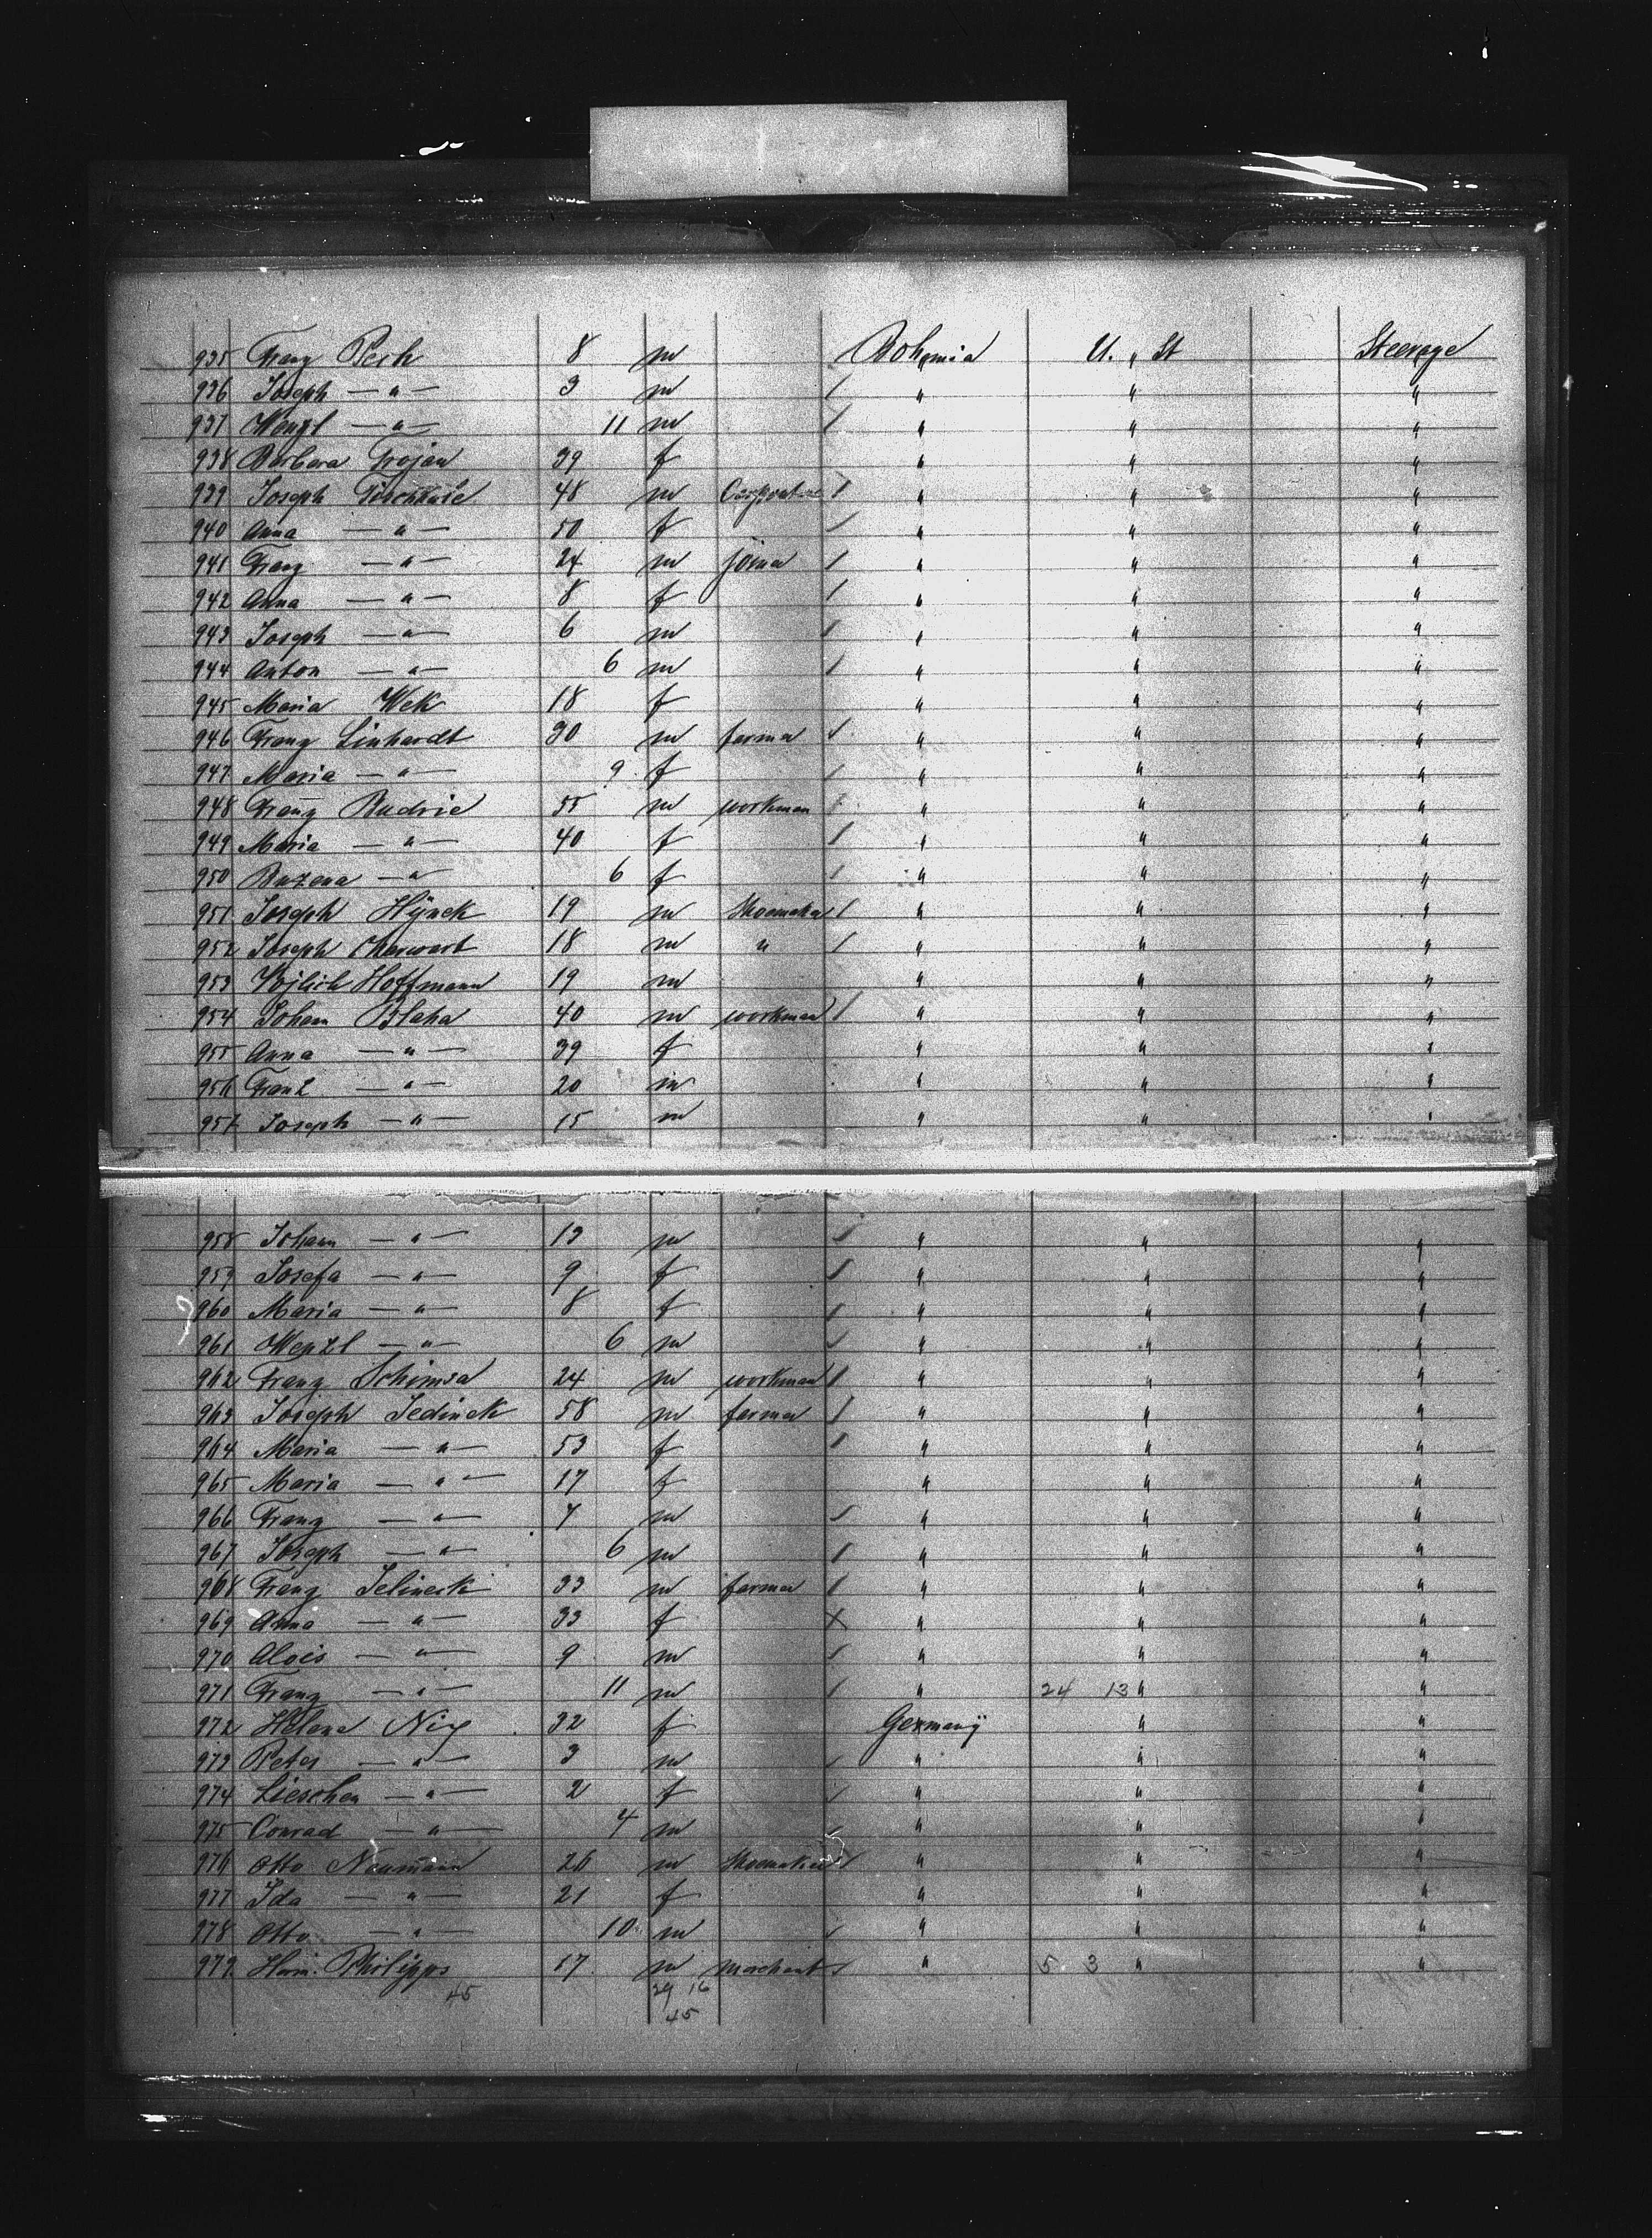 935 Franz Pech 8 m Bohemia U. St Steerage
936 Joseph — " — 3 m " " "
937 Wenzl — " — 11 m " " "
938 Barbara Trojan 39 f " " "
939 Joseph 48 m Carpenter " " "
940 Anna — " — 50 f " " "
941 Franz — " — 24 m joiner " " "
942 Anna — " — 8 f " " "
943 Joseph — " — 6 m " " "
944 Anton — " — 6 m " " "
945 Maria Wek 18 f " " "
946 Franz Linhardt 30 m farmer " " "
947 Maria — " — 9 f " " "
948 Franz Rudric 55 m workman " " "
949 Maria — " — 40 f " " "
950 — " — 6 f " " "
951 Joseph Hÿnek 19 m Shoemaker " " "
952 Joseph 18 m " " " "
953 Hoffmann 19 m " " "
954 Johann Blaha 40 m workman " " "
955 Anna — " — 39 f " " "
956 Franz — " — 20 m " " "
957 Joseph — " — 15 m " " "
958 Johann — " — 13 m " " "
959 Josefa — " — 9 f " " "
960 Maria — " — 8 f " " "
961 Wenzl — " — 6 m " " "
962 Franz Schimsa 24 m workman " " "
963 Joseph Jedinek 58 m farmer " " "
964 Maria — " — 53 f " " "
965 Maria — " — 17 f " " "
966 Franz — " — 7 m " " "
967 Joseph — " — 6 m " " "
968 Franz Jelineck 33 m farmer " " "
969 Anna — " — 33 f × " " "
970 Alois — " — 9 m " " "
971 Franz — " — 11 m " 24 13 " "
972 Helene Nix 32 f Germanÿ " "
973 Peter — " — 3 m " " "
974 Lieschen — " — 2 f " " "
975 Conrad — " — 4 m " " "
976 Otto Naumann 26 m Shoemaker " " "
977 Ida — " — 21 f " " "
978 Otto — " — 10 m " " "
979 Herm. Philipps 17 m merchant " 5 3 " "
45 29 16
45